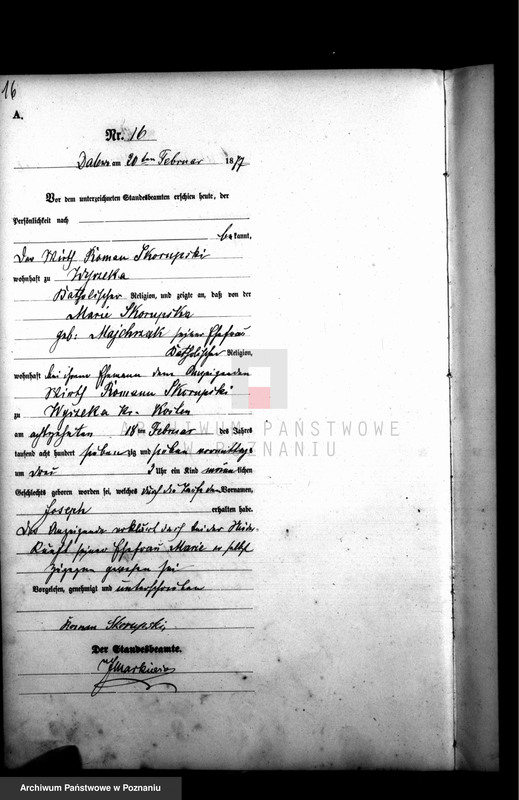 16
A.
Nr. 16
am 20ten Februar 1877
Vor dem unterzeichneten Standesbeamten erschien heute, der
Persönlichkeit nach
bekannt,
Der Wirth Roman Skorupski
wohnhaft zu Wyrzeka
Katholischer Religion, und zeigte an, daß von der
Marie Skorupska
geb: Majchrzak seiner Ehefrau
Katholischer Religion,
wohnhaft bei ihrem Ehemann dem Anzeigenden
Wirth Romann Skorupski
zu Wyrzeka Kr. Kosten
am achtzehnten 18ten Februar des Jahres
tausend acht hundert sieben zig und sieben vormittags
um drei 3 Uhr ein Kind männlichen
Geschlechts geboren worden sei, welches durch die Taufe den Vornamen,
Joseph
erhalten habe.
Der Anzeigende erklärt daß bei der Nieder-
kunft seiner Ehefrau Marie er selbst
zugegen gewesen sei
Vorgelesen, genehmigt und unterschrieben
Roman Skorupski,
Der Standesbeamte.
ARCHIWUM PAŃSTWOWE
W POZNANIU
Archiwum Państwowe w Poznaniu